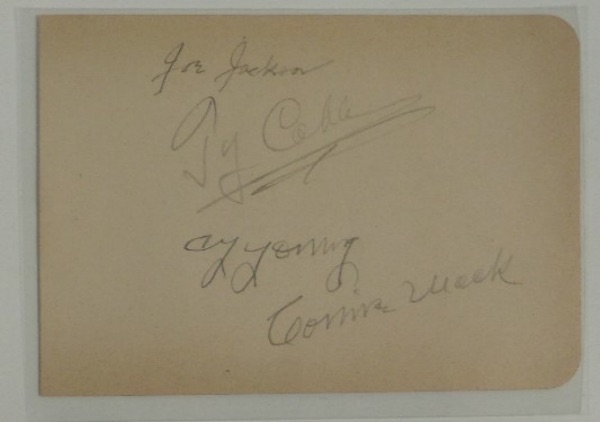 Joe Jackson
Ty Cobb
Cy Young
Connie Mack